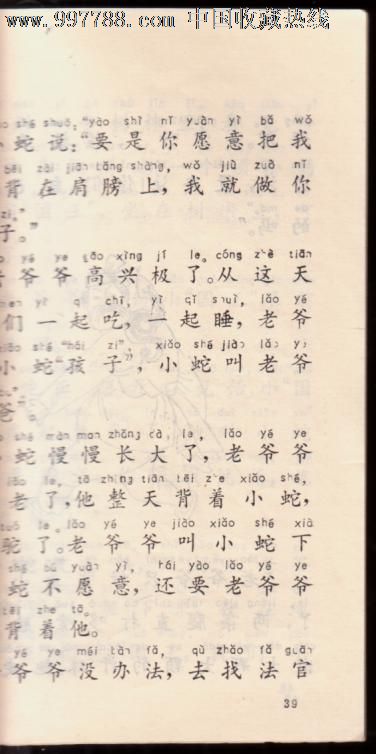 www.997788.com 中国收藏热线
shé shuō: "yào shì nǐ yuàn yì bǎ wǒ
蛇说:“要是你愿意把我
bēi zài jiān bǎng shàng, wǒ jiù zuò nǐ
背在肩膀上,我就做你
zi."
子。”
yé ye gāo xìng jí le. cóng zhè tiān
爷爷高兴极了。从这天
men yì qǐ chī, yì qǐ shuì, lǎo yé
们一起吃,一起睡,老爷
xiǎo shé "hái zi", xiǎo shé jiào lǎo yé
小蛇“孩子”,小蛇叫老爷
爸”。
shé màn man zhǎng dà le, lǎo yé ye
蛇慢慢长大了,老爷爷
lǎo le, tā zhěng tiān bēi zhe xiǎo shé,
老了,他整天背着小蛇,
tuó le. lǎo yé ye jiào xiǎo shé xià
驼了。老爷爷叫小蛇下
shé bú yuàn yì, hái yào lǎo yé ye
蛇不愿意,还要老爷爷
bēi zhe tā.
背着他。
yé ye méi bàn fǎ, qù zhǎo fǎ guān
爷爷没办法,去找法官
39